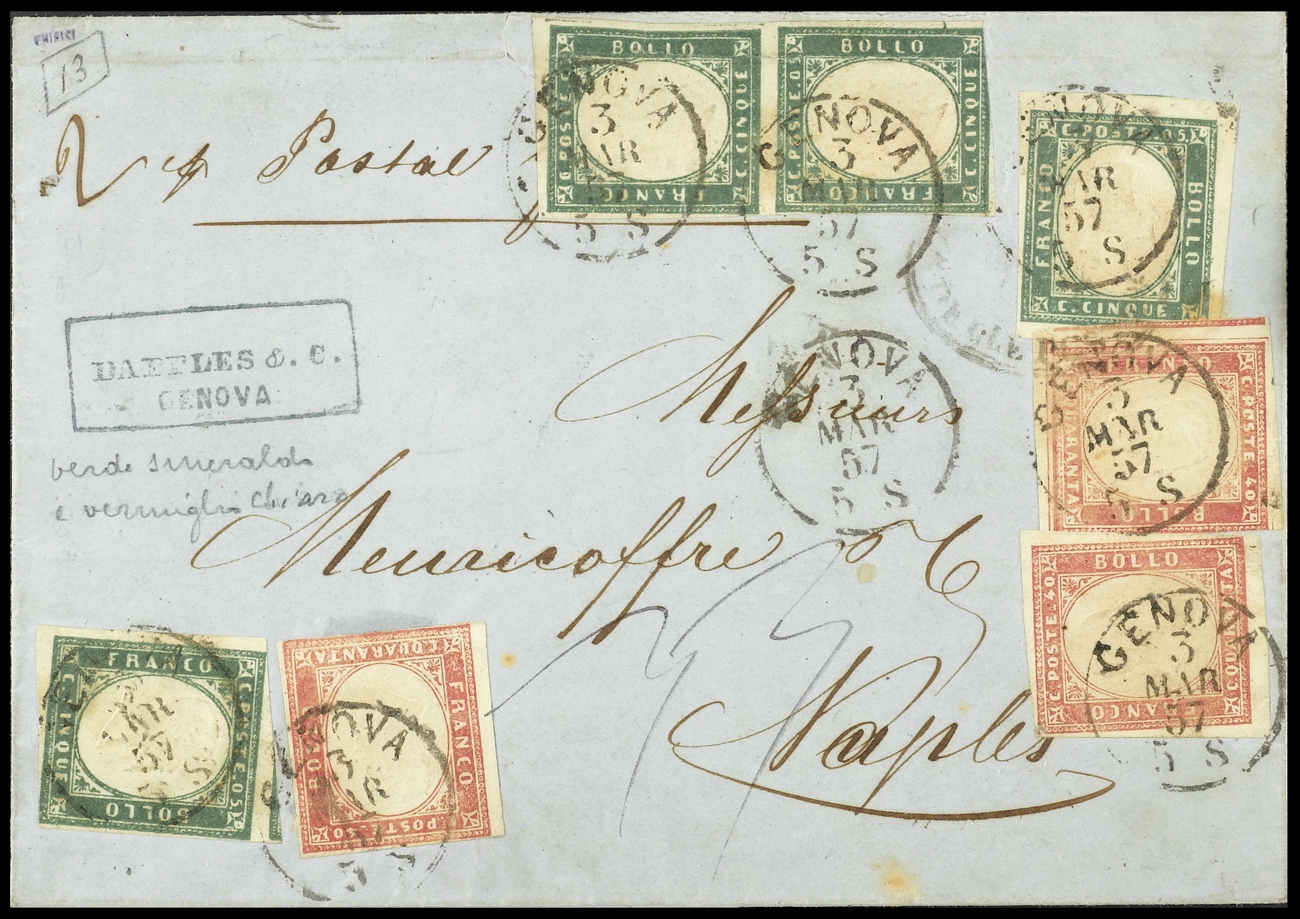 CHIRICI
13
2 & Postal
BOLLO
C. POSTE. 05
C. CINQUE
FRANCO
BOLLO
C. POSTE. 05
C. CINQUE
FRANCO
GENOVA
3
MAR
57
5 S
GENOVA
3
MAR
57
5 S
C. POSTE. 05
FRANCO
BOLLO
C. CINQUE
MAR
57
5 S
DAEPLES &. C.
GENOVA
verde smeraldo
e vermiglio chiaro
Messieurs
Meuricoffre & C
Naples
GENOVA
3
MAR
57
5 S
C. POSTE. 40
C. QUARANTA
BOLLO
GENOVA
3
MAR
57
5 S
BOLLO
C. POSTE. 40
C. QUARANTA
FRANCO
GENOVA
3
MAR
57
5 S
FRANCO
C. CINQUE
C. POSTE. 05
BOLLO
MAR
57
5 S
C. QUARANTA
BOLLO
FRANCO
C. POSTE. 40
GENOVA
3
MAR
57
5 S